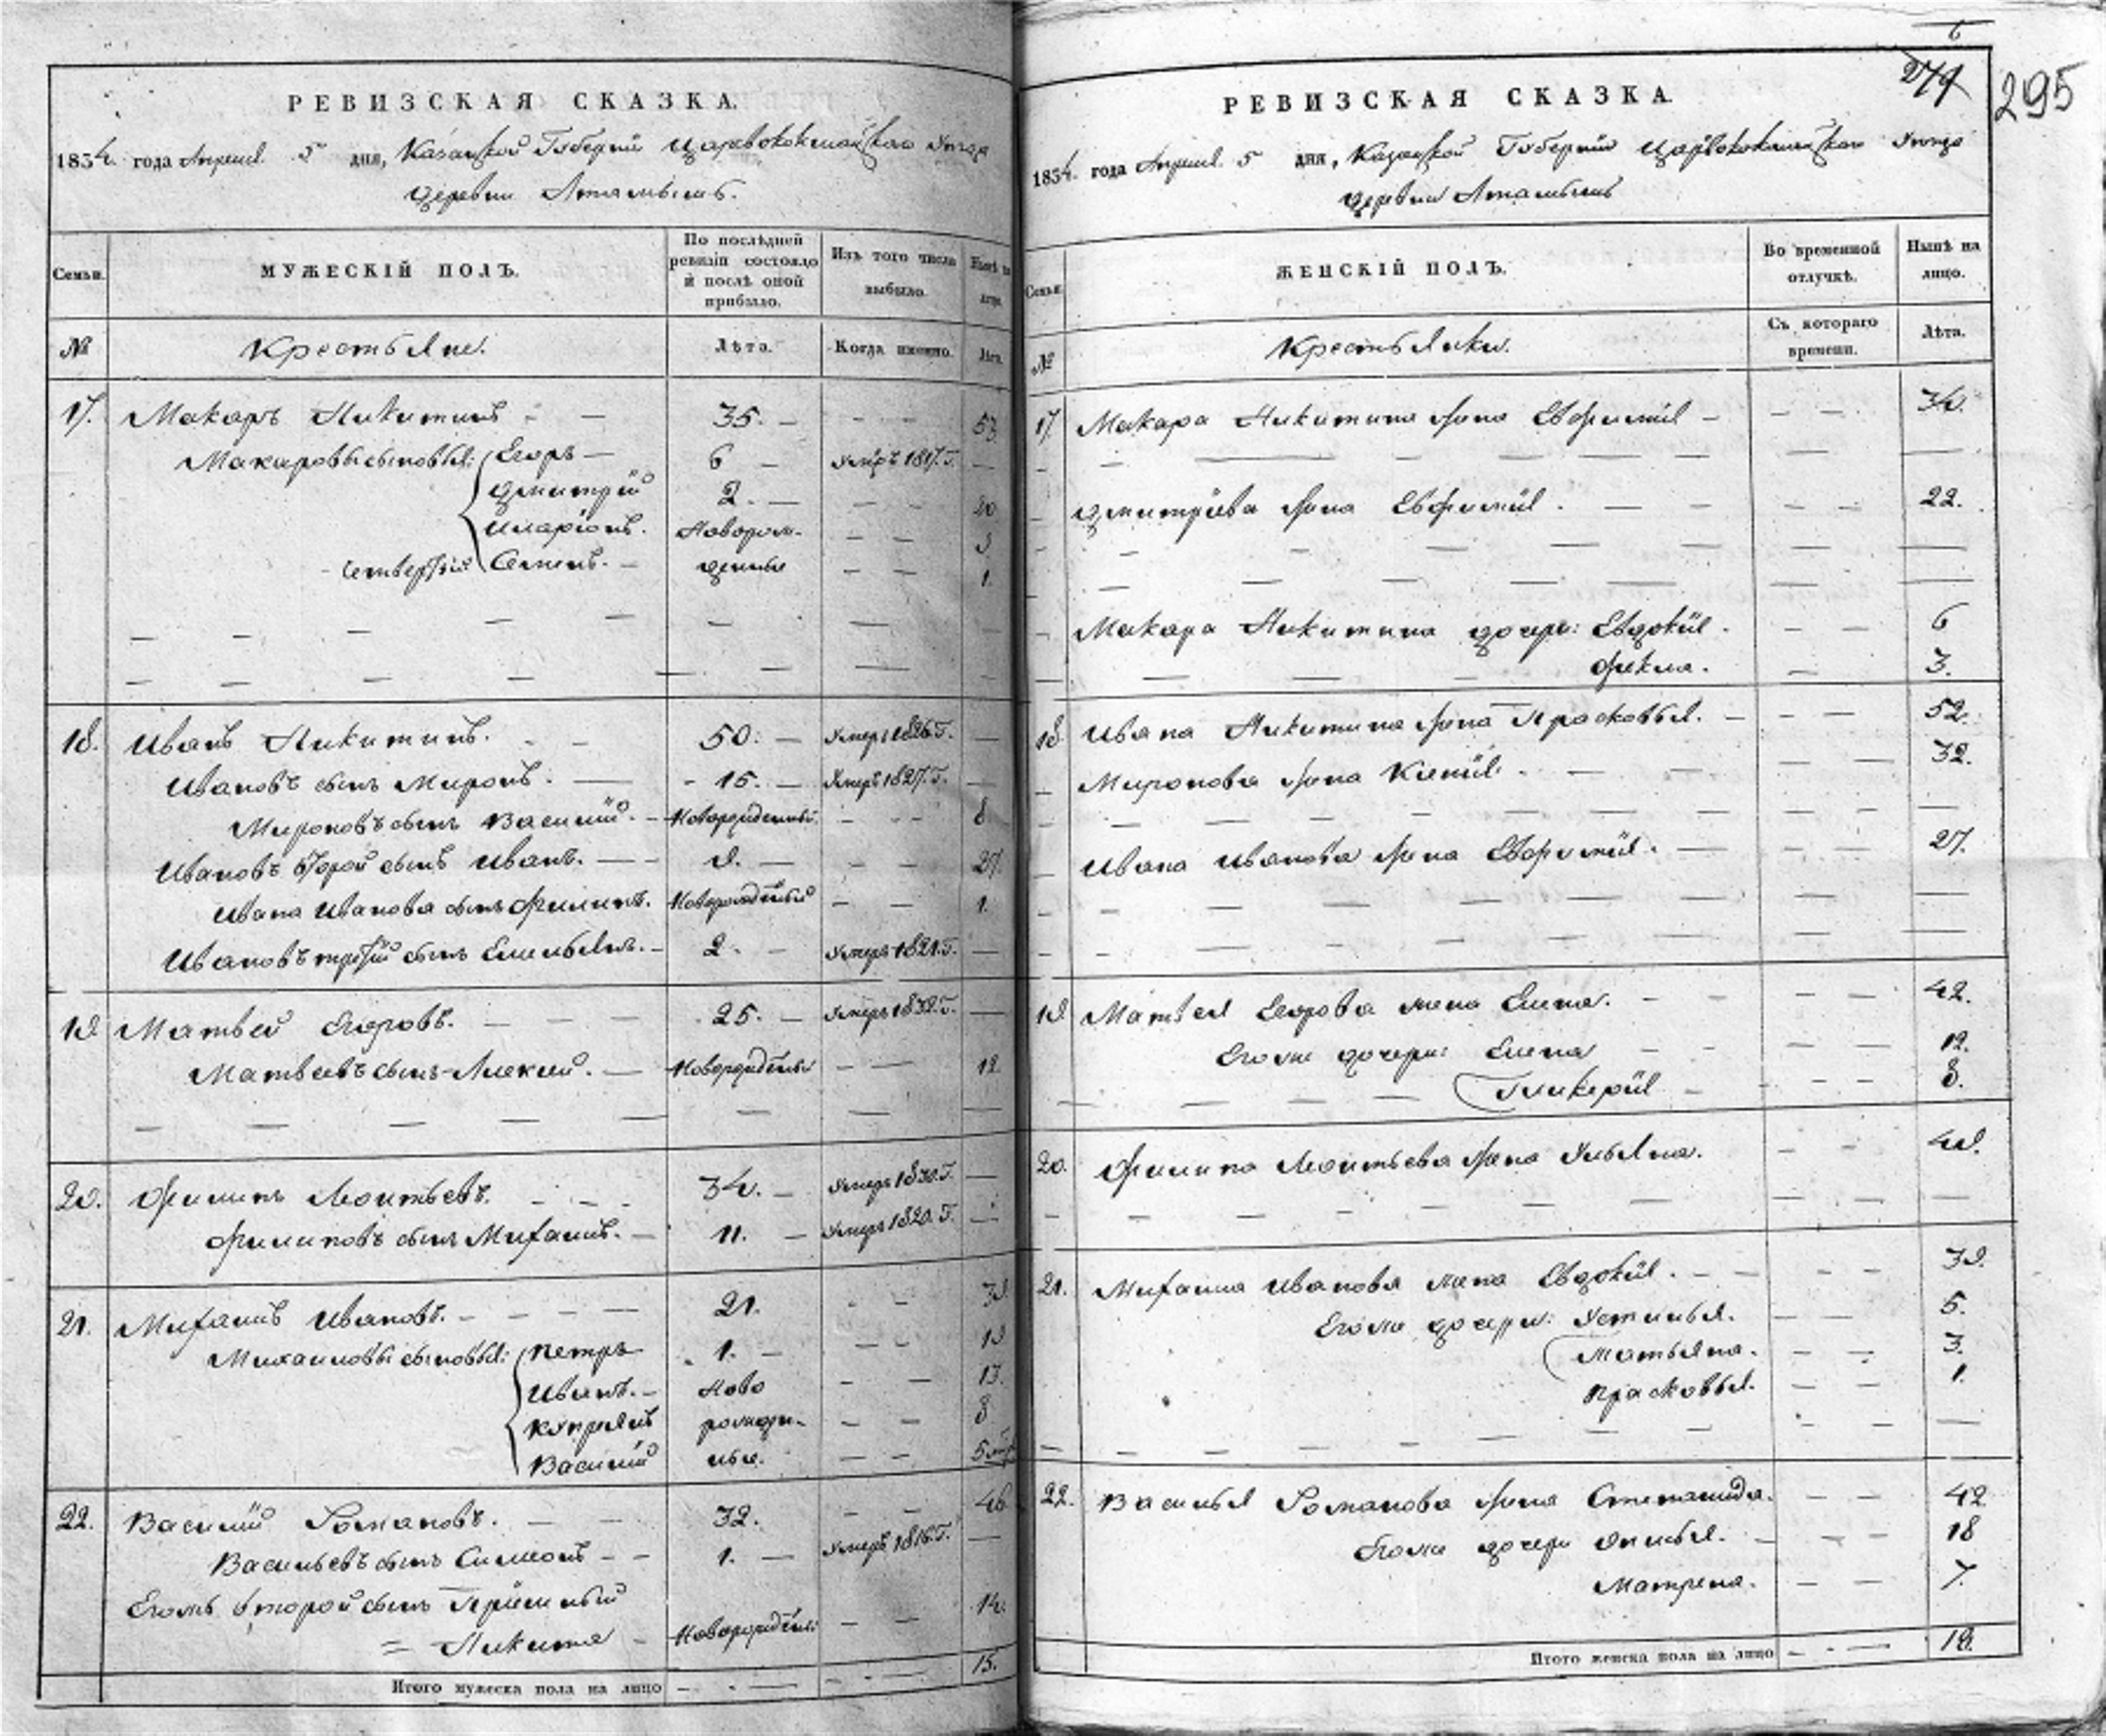 РЕВИЗСКАЯ СКАЗКА.
1834. года Апреля 5 дня, Казанской Губернии Царевококшайскаго Уезда
деревни
Семьи.
МУЖЕСКІЙ ПОЛЪ.
По послѣдней ревизіи состояло и послѣ оной прибыло.
Изъ того числа выбыло.
Нынѣ на лицо.
№
Крестьяне.
Лѣта.
Когда именно.
Лѣта.
17. Макаръ Никитинъ - — 35. — - - 53.
Макаровы сыновья: Егоръ — 6 — Умеръ 1817. Г. —
Дмитрій 2. — - - 20
Иларіонъ. Новорож- - - 9
четвертый Семенъ. — денные — — 1.
18. Иванъ Никитинъ. - - 50. — Умеръ 1826. Г. —
Ивановъ сынъ Миронъ. — - 15. — Умеръ 1827. Г. —
Мироновъ сынъ Василій. - Новорожденный - - - 8
Ивановъ второй сынъ Иванъ. — - 9. — - - 27.
Ивана Иванова сынъ Филипъ. Новорожденный - - 1.
Ивановъ третій сынъ Емельянъ. - 2. - Умеръ 1821. Г. —
19. Матвей Егоровъ. - — — - 25. — Умеръ 1832. Г. —
Матвеевъ сынъ Алексей. — Новорожденный - — 12.
20. Филипъ Леонтьевъ. - - - 34. — Умеръ 1830. Г. —
Филиповъ сынъ Михаилъ. — 11. — Умеръ 1820. Г. —
21. Михаилъ Ивановъ. - - - — 21. - - 39.
Михаиловы сыновья: Петръ 1. — - - 19
Иванъ. — Ново - — 13.
Купреянъ рожден- — — 8
Василій ные. — — 5
22. Василій Романовъ. — — 32. — - 46
Васильевъ сынъ Симеонъ - - 1. — Умеръ 1816. Г. —
Егожъ второй сынъ Пріемный
= Никита - Новорожден: — - 14.
Итого мужеска пола на лицо - - — - - — 15.
6
279
295
РЕВИЗСКАЯ СКАЗКА.
1834. года Апреля 5 дня, Казанской Губерніи Царевококшайскаго Уезда
деревни
Семьи.
ЖЕНСКІЙ ПОЛЪ.
Во временной отлучкѣ.
Нынѣ на лицо.
№
Крестьянки.
Съ котораго времени.
Лѣта.
17. Макара Никитина жена Евфимія - - — 34.
Дмитріева жена Евфимія. — - — - — 22.
Макара Никитина дочери: Евдокія - - — 6
Фекла. — 3.
18. Ивана Никитина жена Прасковья. - - — 52.
Миронова жена Ксенія - — - — — 32.
Ивана Иванова жена Евфимія. — - — — 27.
19. Матвея Егорова жена Елена. - - - — 42.
Егоже дочери: Елена - - — — 12.
Гликерія - - — 8.
20. Филипа Леонтьева жена Ульяна. - — 49.
21. Михаила Иванова жена Евдокія. - — - — 39.
Егоже дочери: Устинья. — — 5.
Татьяна. — - 3.
Прасковья. — — 1.
22. Василья Романова жена Степанида. - — 42
Егоже дочери - - — 18
Матрена. - — 7.
Итого женска пола на лицо - - — 18.